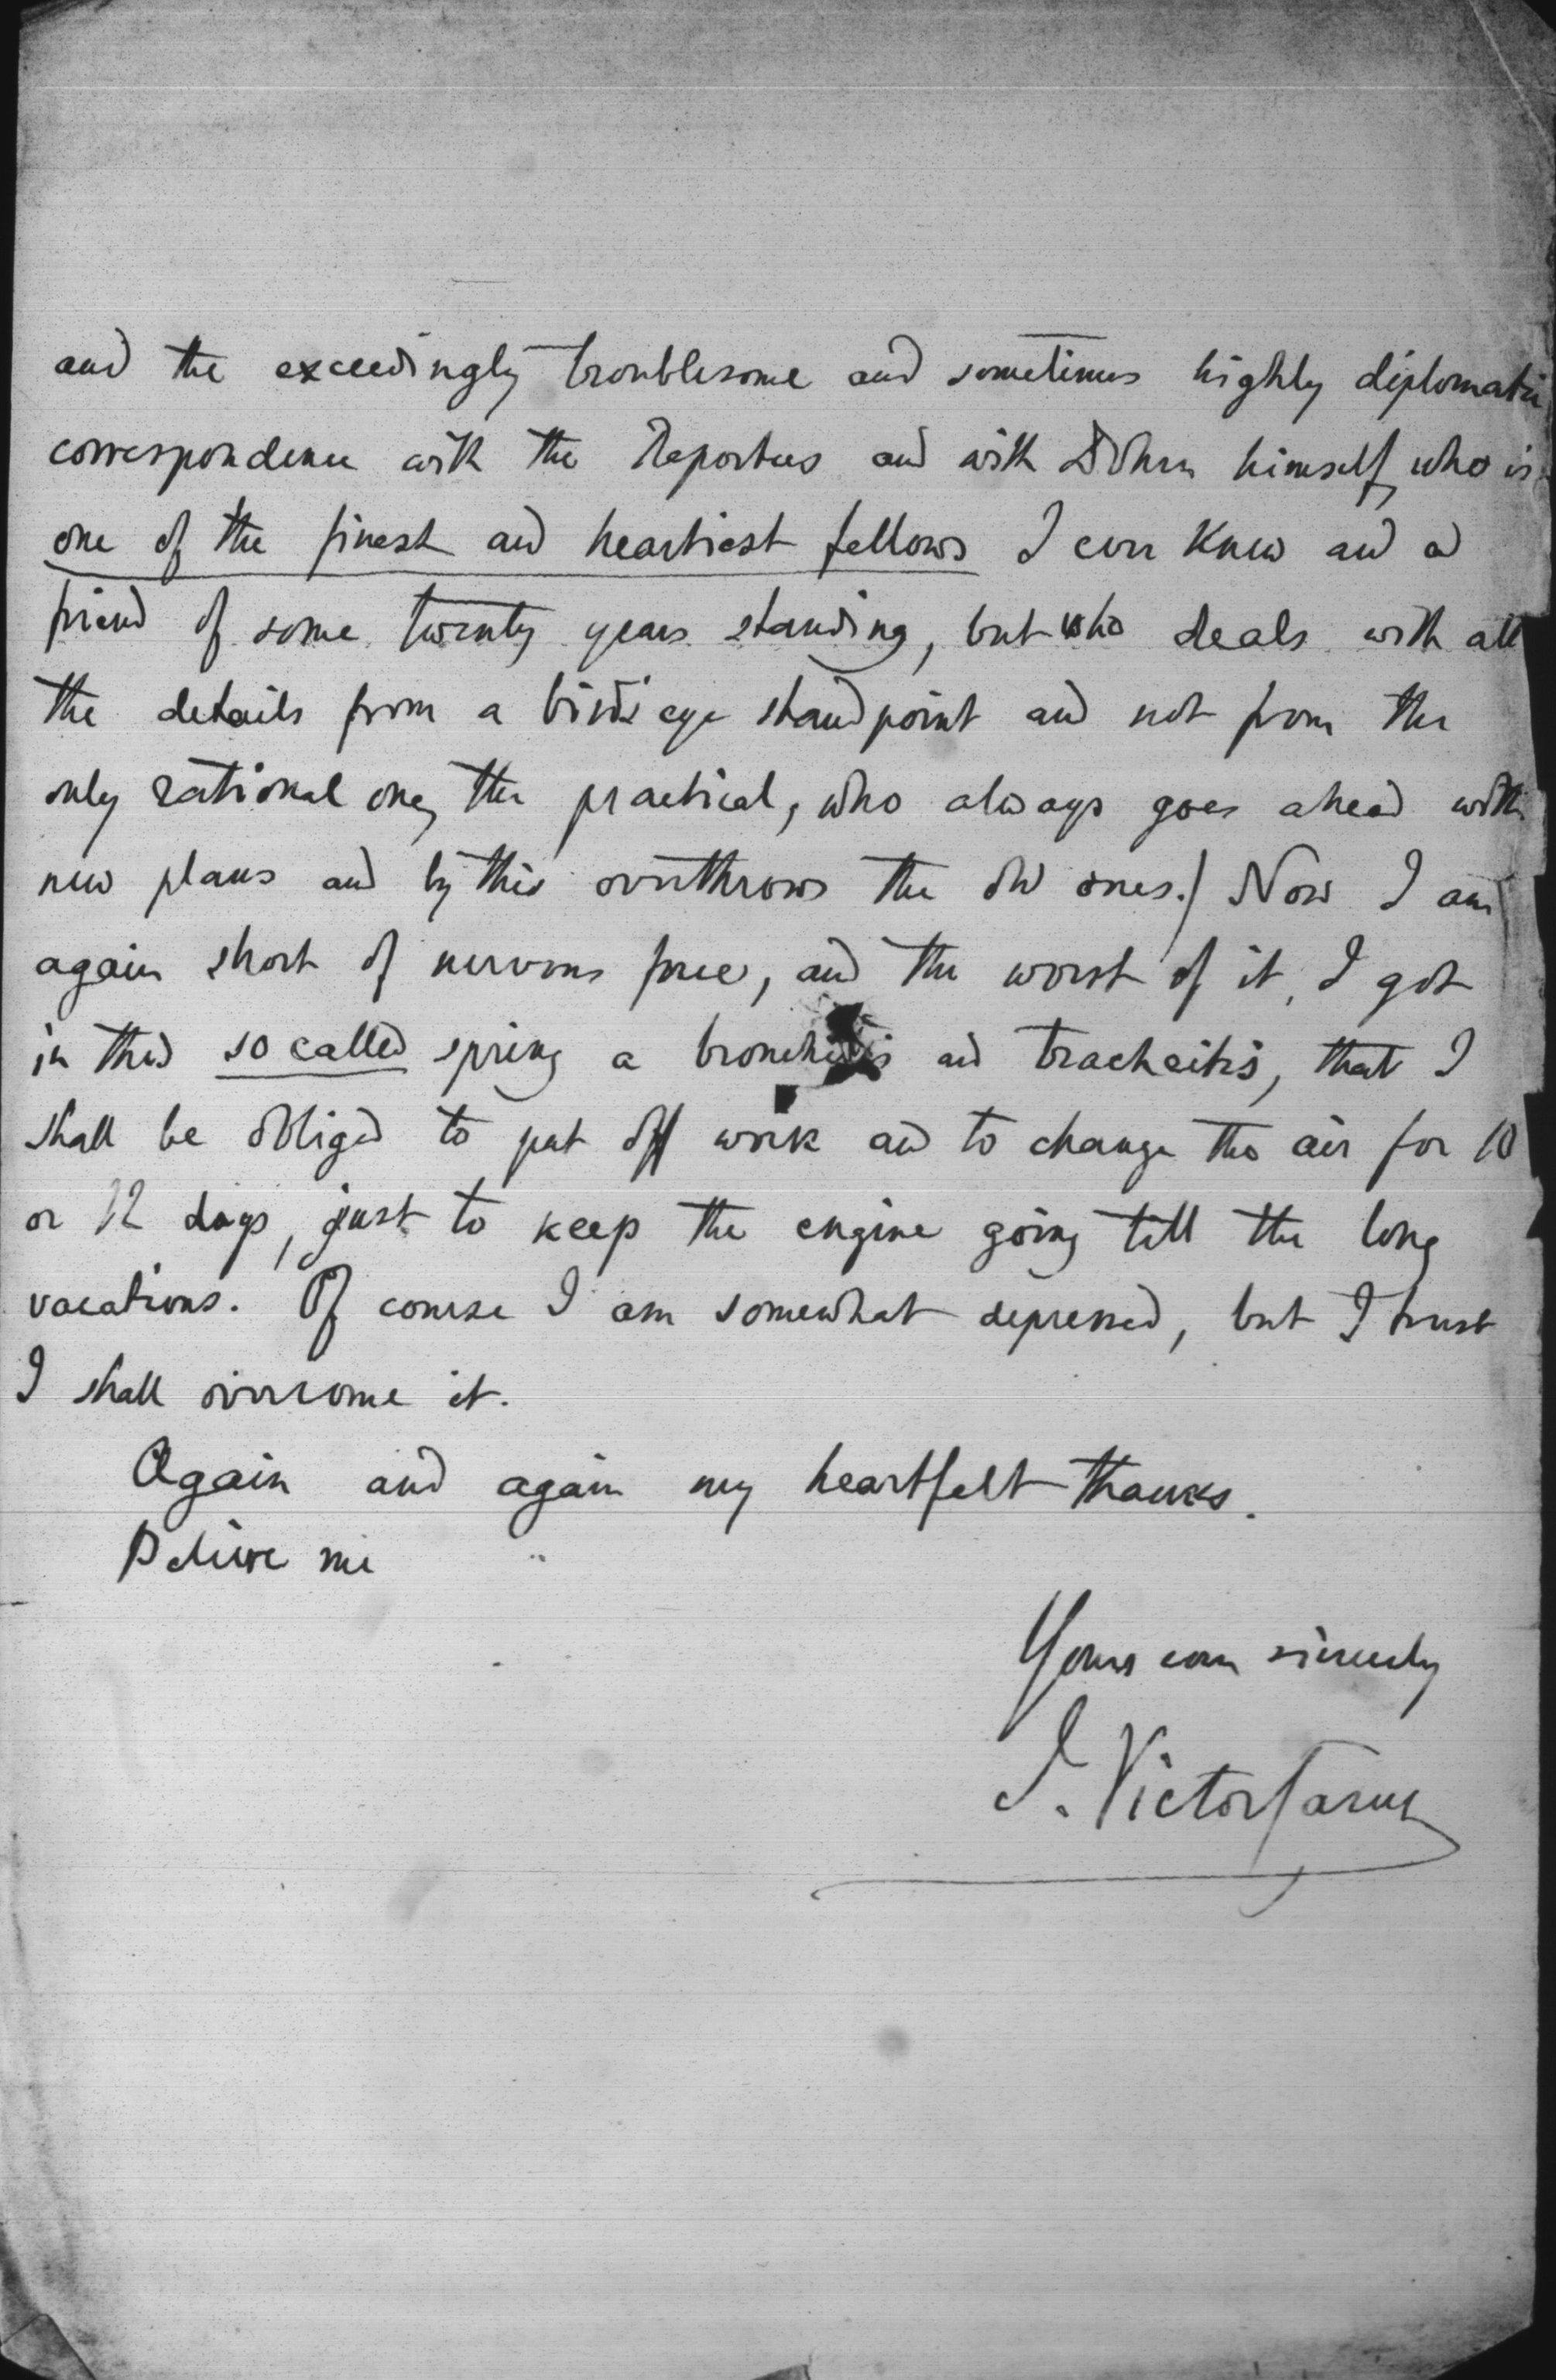 and the exceedingly troublesome and sometimes highly diplomatic
correspondence with the Reporters and with Dohrn himself, who is
one of the finest and heartiest fellows I ever knew and a
friend of some twenty years standing, but who deals with all
the details from a bird's eye standpoint and not from the
only rational one, the practical, who always goes ahead with
new plans and by this overthrows the old ones.) Now I am
again short of nervous force, and the worst of it, I got
in this so called spring a bronchitis and tracheitis, that I
shall be obliged to put off work and to change the air for 10
or 12 days, just to keep the engine going till the long
vacations. Of course I am somewhat depressed, but I trust
I shall overcome it.
Again and again my heartfelt thanks.
Believe me
Yours ever sincerely
J. Victor Carus